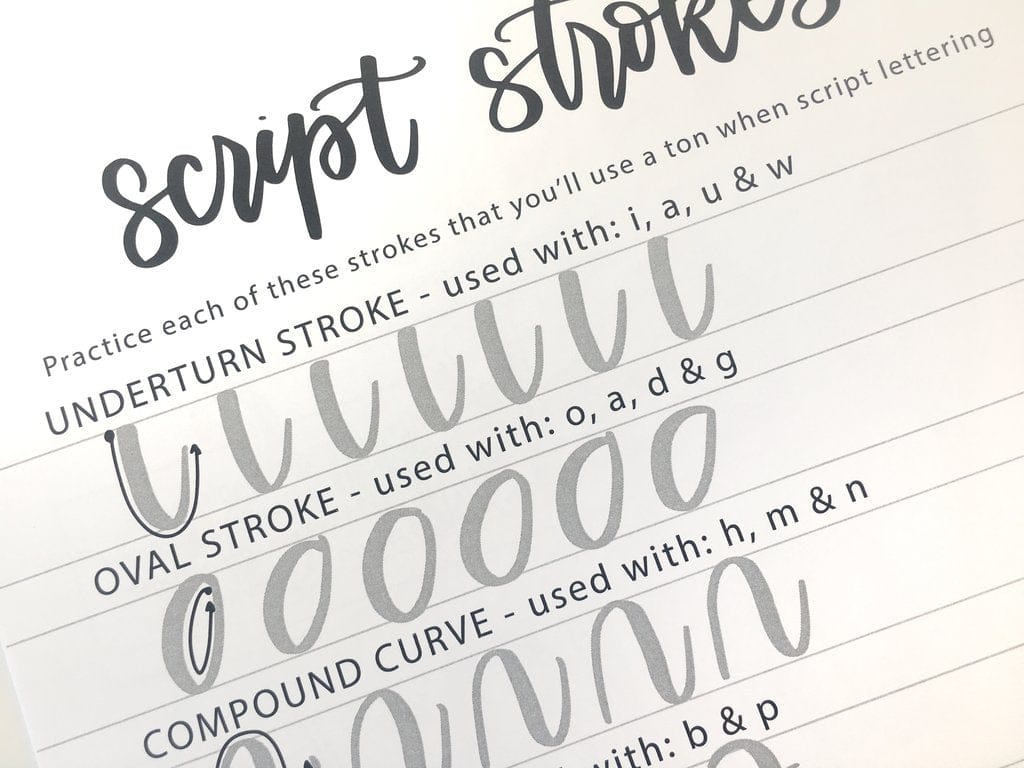 script strokes
Practice each of these strokes that you'll use a ton when script lettering
UNDERTURN STROKE - used with: i, a, u & w
OVAL STROKE - used with: o, a, d & g
COMPOUND CURVE - used with: h, m & n
with: b & p